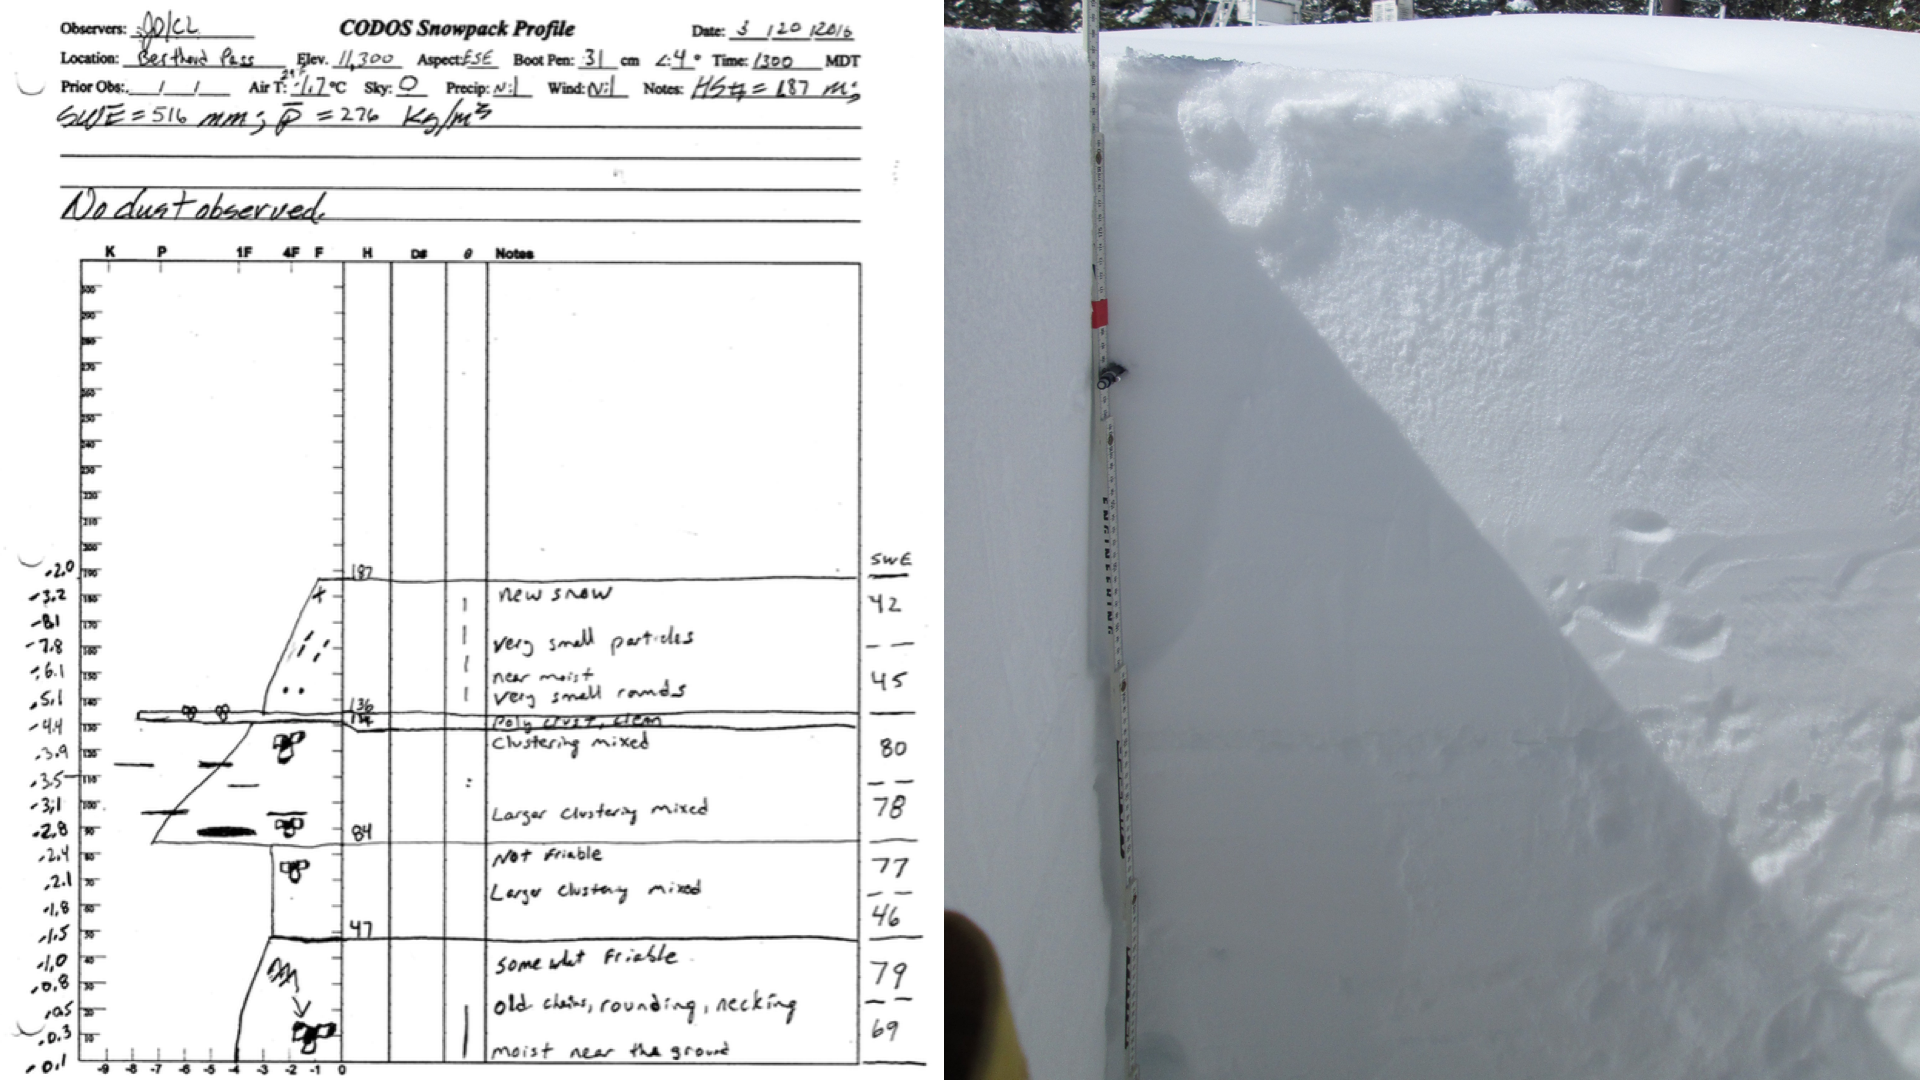 Observers: JD/CL CODOS Snowpack Profile Date: 3 / 20 / 2016
Location: Berthoud Pass Elev. 11,300 Aspect: ESE Boot Pen: 31 cm ∠: 4 ° Time: 1300 MDT
Prior Obs: / / Air T: -1.7 °C Sky: O Precip: Nil Wind: Nil Notes: HS = 187 m;
SWE = 516 mm; ρ = 276 Kg/m³
No dust observed.
K P 1F 4F F H D# θ Notes
300
290
280
270
260
250
240
230
220
210
200
SWE
-2.0 190 187
-3.2 180 + new snow 42
-8.1 170
-7.8 160 very small particles
-6.1 150 near moist 45
-5.1 140 very small rounds
136
-4.4 130 Poly crust, clean
-3.9 120 Clustering mixed 80
-3.5 110
-3.1 100 Larger clustering mixed 78
-2.8 90 84
-2.4 80 Not Friable 77
-2.1 70 Larger clustery mixed
-1.8 60 46
-1.5 50 47
-1.0 40 Somewhat Friable 79
-0.8 30
-0.5 20 old chains, rounding, necking
-0.3 10 69
-0.1 moist near the ground
-9 -8 -7 -6 -5 -4 -3 -2 -1 0
ENGINEERING